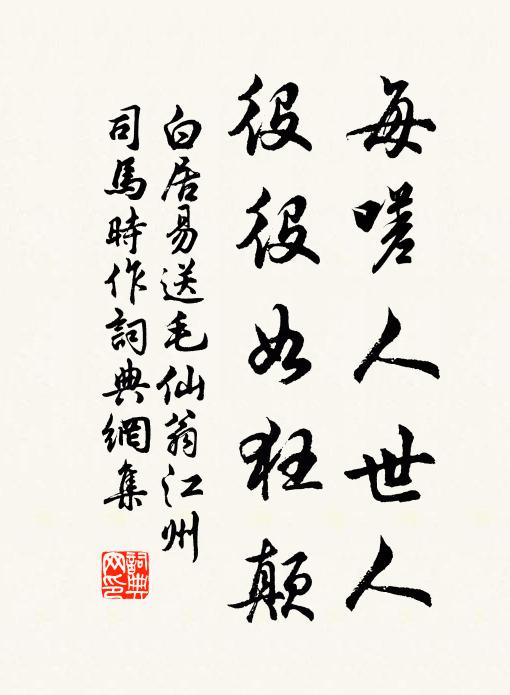 每嗟人世人
役役如狂顛
白居易送毛仙翁江州
司馬時作詞典網集
詞典
网印